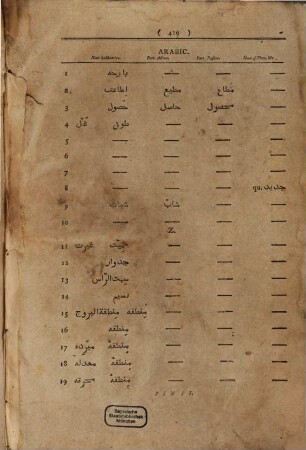 ( 419 )
ARABIC.
Noun Substantive. Part. Active. Part. Passive. Noun of Place, &c.
1 بارحه — — —
2 اطاعت مطيع مطاع —
3 حصول حاصل محصول —
4 طول — — —
5 — — — —
6 — — — —
7 — — — —
8 — — — qu. جديد
9 شباب شاب — —
10 — — — —
Z.
11 غيرت — — —
12 جدوار — — —
13 سمت الراس — — —
14 نسيم — — —
15 منطقه منطقة البروج — — —
16 منطقه — — —
17 منطقه مبرده — — —
18 منطقه معدله — — —
19 منطقه محرقه — — —
FINIS.
Bayerische
Staatsbibliothek
München